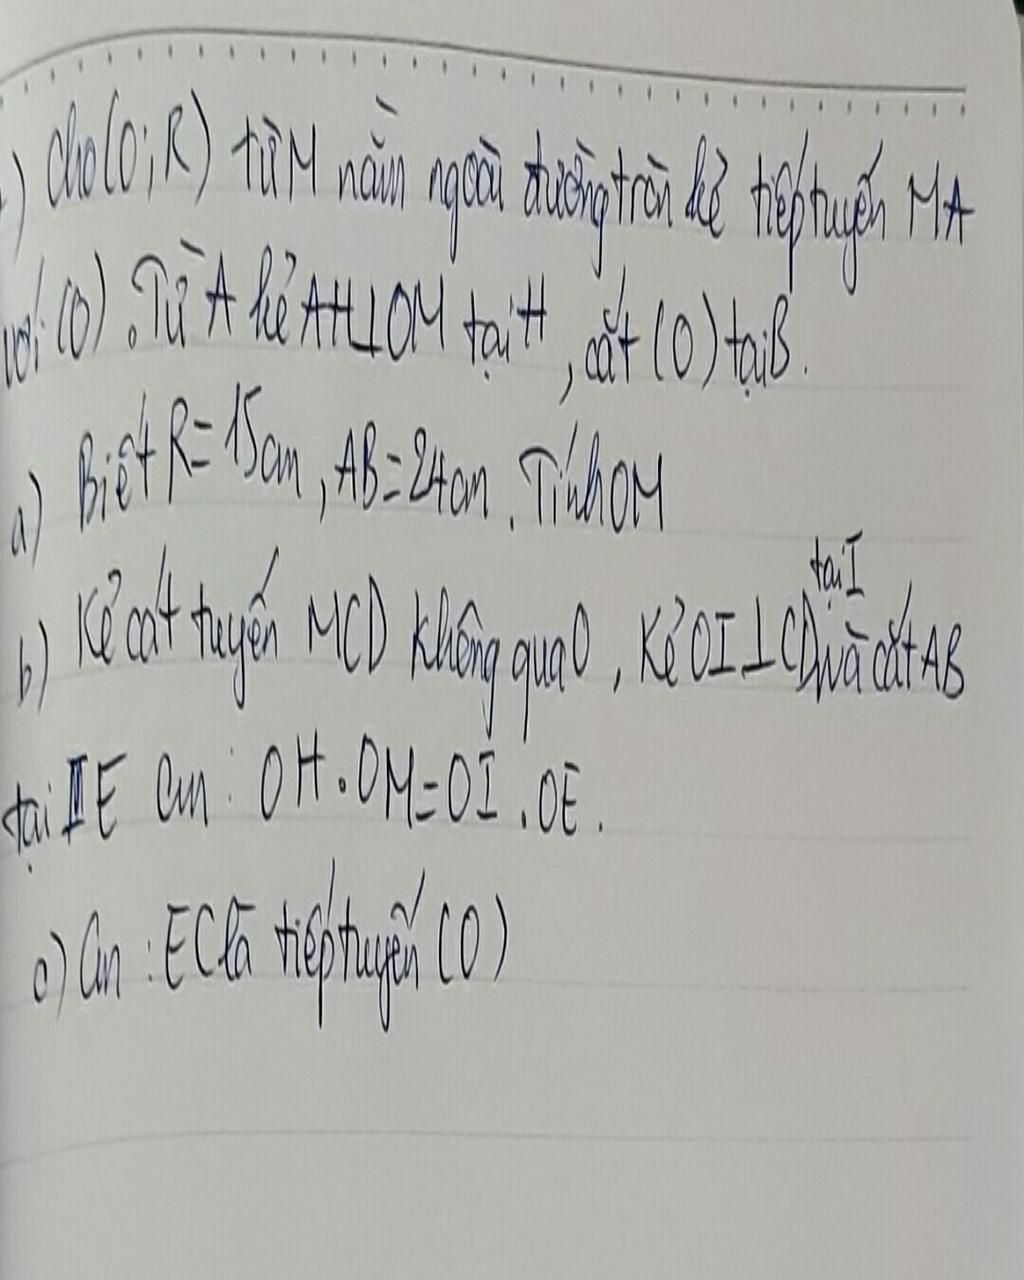 ) Cho (O; R) từ M nằm ngoài đường tròn kẻ tiếp tuyến MA
với (O). Từ A kẻ AH⊥OM tại H, cắt (O) tại B.
a) Biết R=15cm, AB=24cm. Tính OM
tại I
b) Kẻ cát tuyến MCD không qua O, Kẻ OI⊥CD và cắt AB
tại E cm: OH.OM=OI.OE.
c) Cm: EC là tiếp tuyến (O)